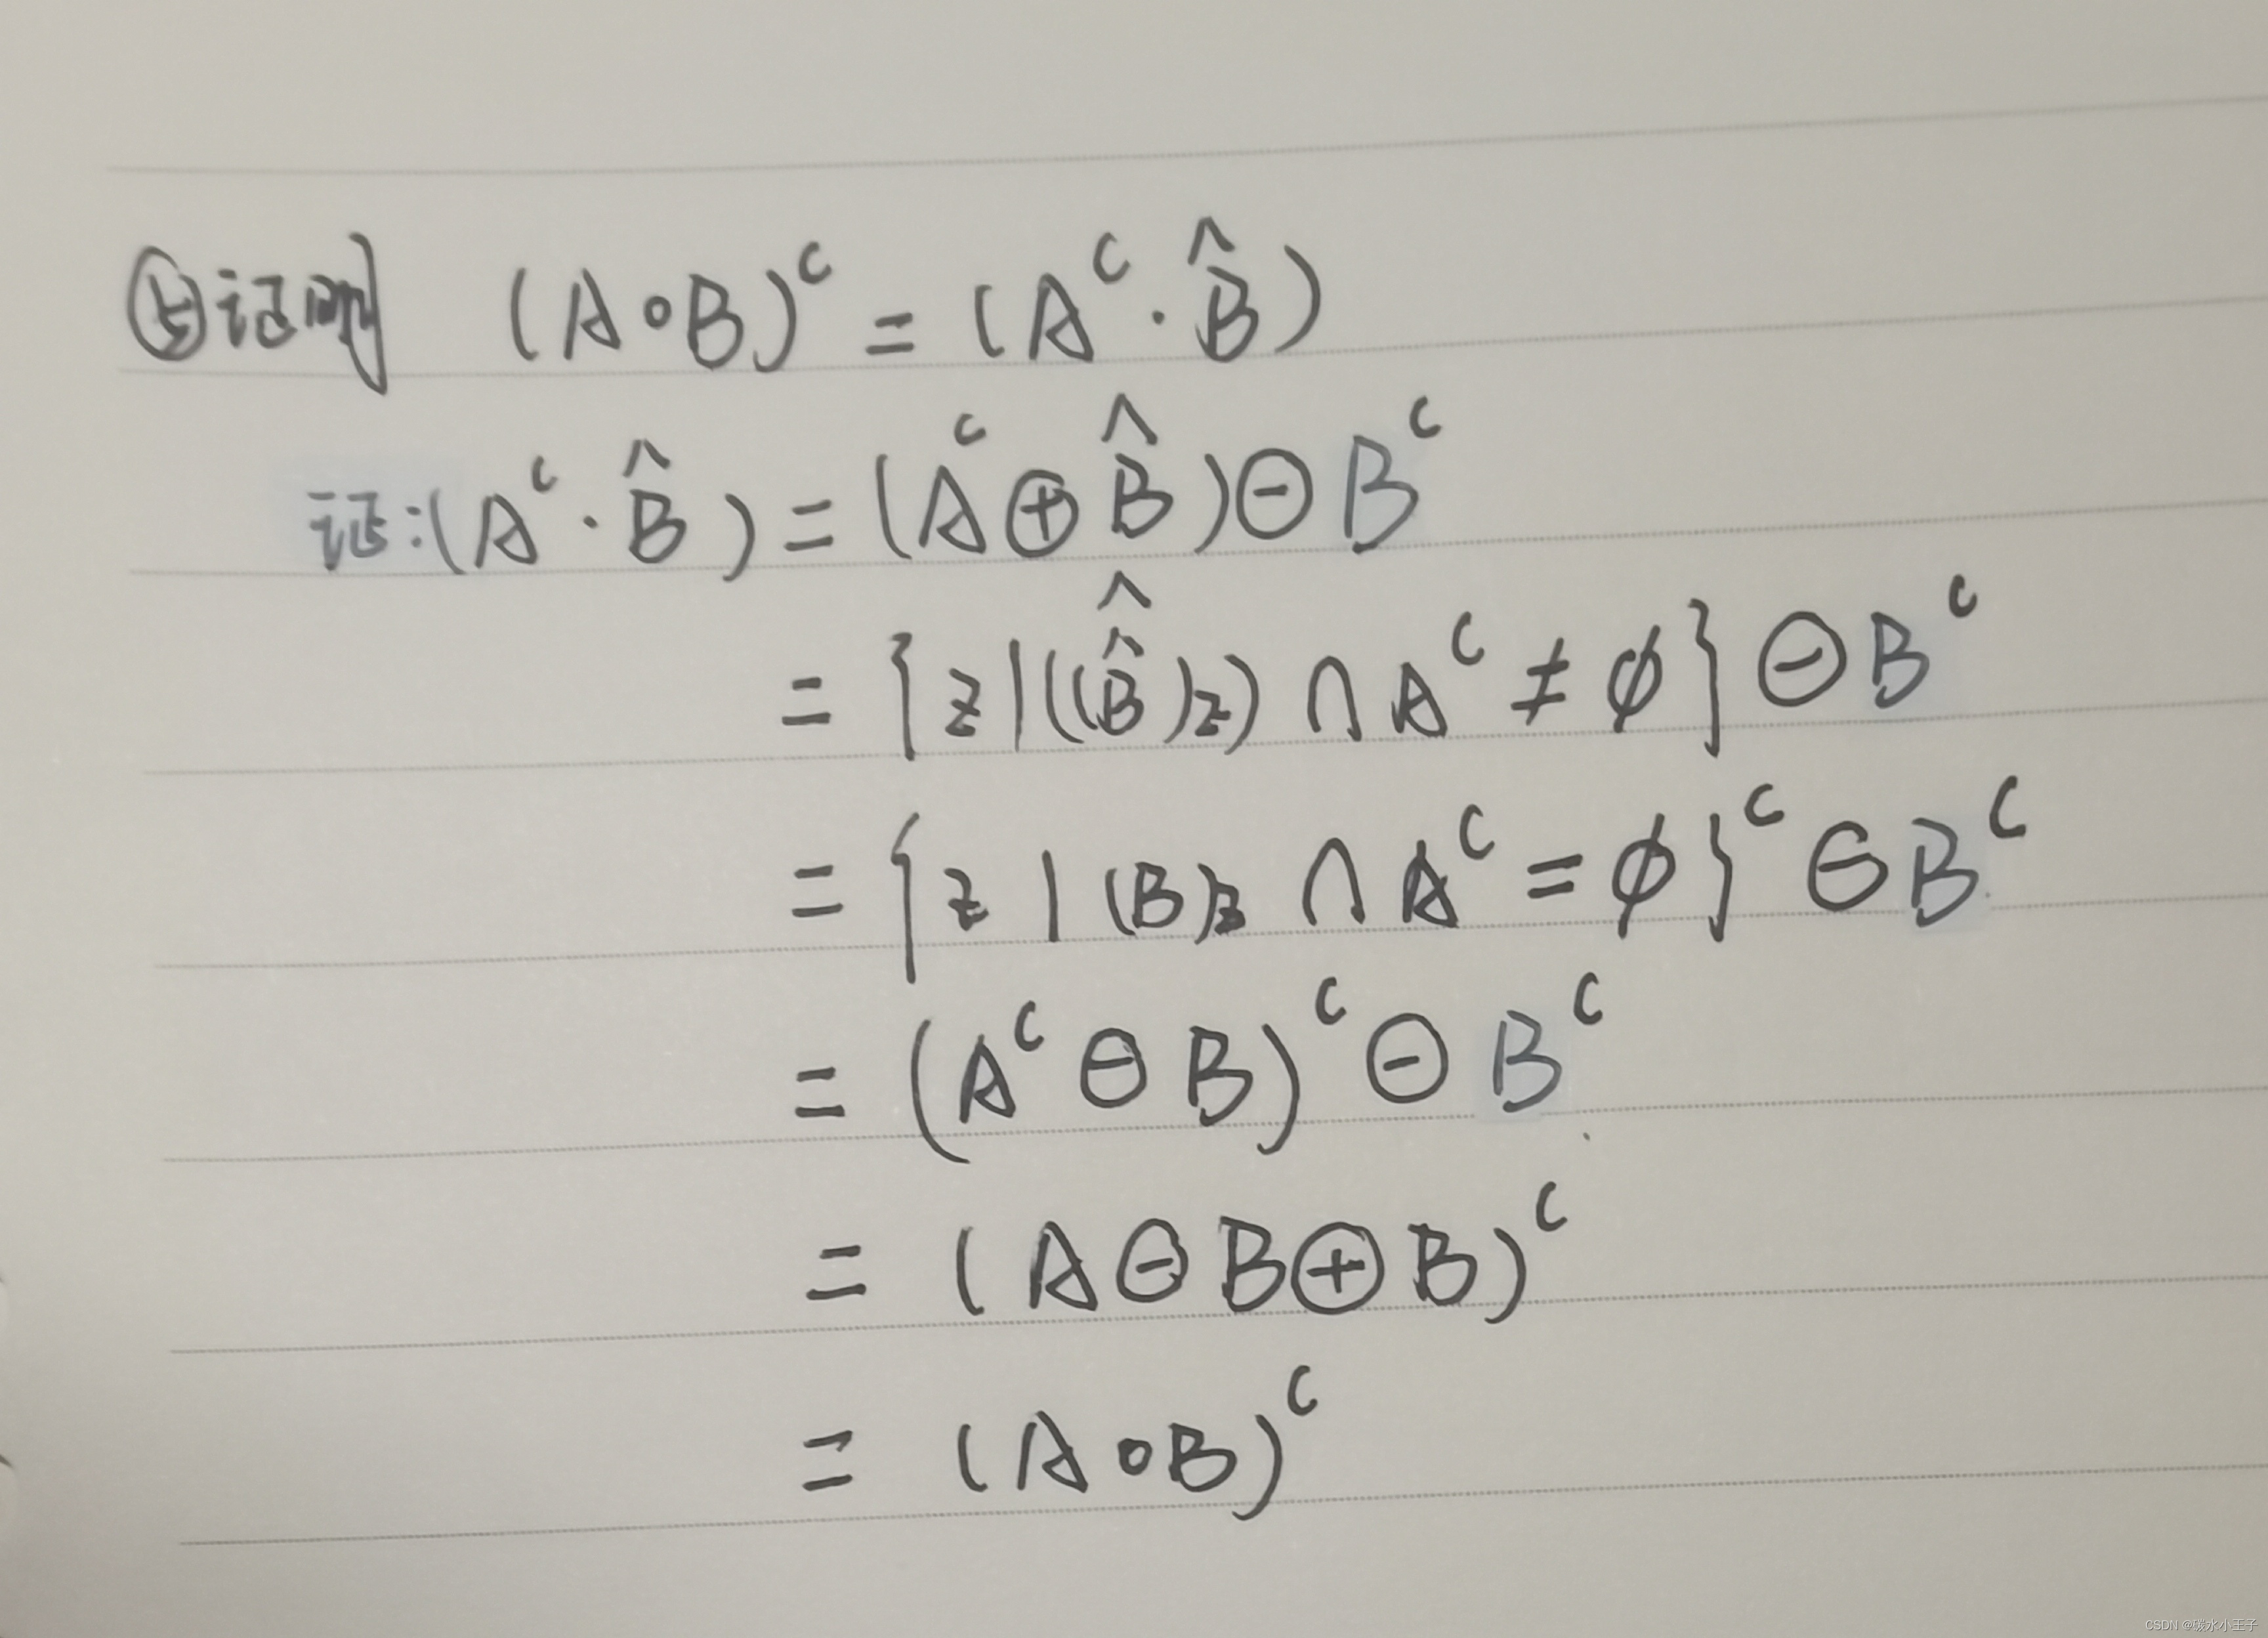 ⑤证明 (A∘B)ᶜ = (Aᶜ·B̂)
证:(Aᶜ·B̂) = (Aᶜ⊕B̂)⊖Bᶜ
= {z|((B̂̂)z)∩Aᶜ≠∅}⊖Bᶜ
= {z|(B)z∩Aᶜ=∅}ᶜ⊖Bᶜ
= (Aᶜ⊖B)ᶜ⊖Bᶜ
= (A⊖B⊕B)ᶜ
= (A∘B)ᶜ
CSDN @碳水小王子